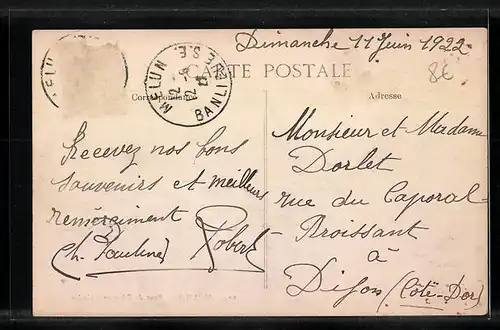 Dimanche 11 Juin 1922
8€
CARTE POSTALE
MELUN
12 - 6
22
BANLIEUE
S.E.
Correspondance
Adresse
Recevez nos bons
souvenirs et meilleurs
remerciment
Robert
Monsieur et Madame
Dorlet
rue du Caporal-
Broissant
à
Dijon (Côte-Dor)